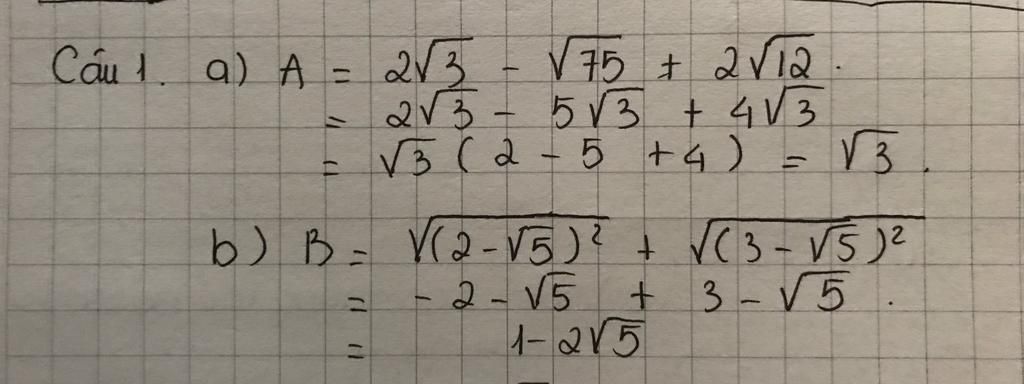 Câu 1. a) A = 2√3 - √75 + 2√12.
= 2√3 - 5√3 + 4√3
= √3 ( 2 - 5 + 4 ) = √3 .
b) B = √(2-√5)² + √(3-√5)²
= - 2 - √5 + 3 - √5 .
= 1 - 2√5